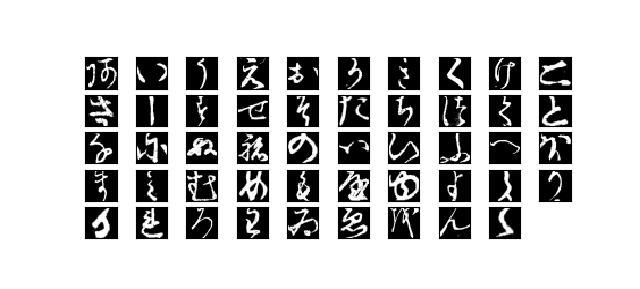 あいうえおかきくけこ
さしすせそたちつてと
なにぬねのはひふへほ
まみむめもやゆよらり
るれろわゐゑをんゝ